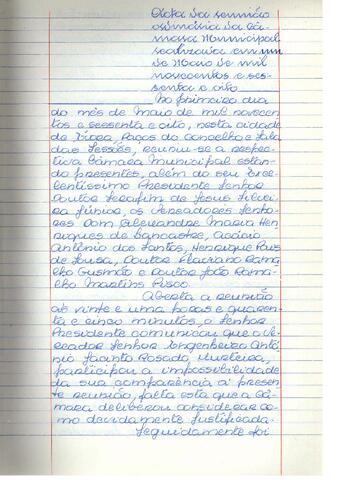 Acta da reunião
ordinária da Câ-
mara Municipal
realizada em um
de Maio de mil
novecentos e ses-
senta e oito
No primeiro dia
do mês de Maio de mil novecen-
tos e sessenta e oito, nesta cidade
de Évora, Paços do Concelho e Sala
das Sessões, reuniu-se a respec-
tiva Câmara Municipal estan-
do presentes, além do seu Exce-
lentíssimo Presidente Senhor
Doutor Serafim de Jesus Silvei-
ra Júnior, os Vereadores Senho-
res Dom Alexandre Maria Hen-
riques de Lancastre, Acácio
António dos Santos, Henrique Pais
de Sousa, Doutor Floriano Rama-
lho Gusmão e Doutor João Rama-
lho Martins
Aberta a reunião
às vinte e uma horas e quaren-
ta e cinco minutos, o Senhor
Presidente comunicou que o Ve-
reador Senhor Engenheiro Antó-
nio Jacinto Rosado Murteira,
participou a impossibilidade
da sua comparência à presen-
te reunião, falta esta que a Câ-
mara deliberou considerar co-
mo devidamente justificada.
Seguidamente foi